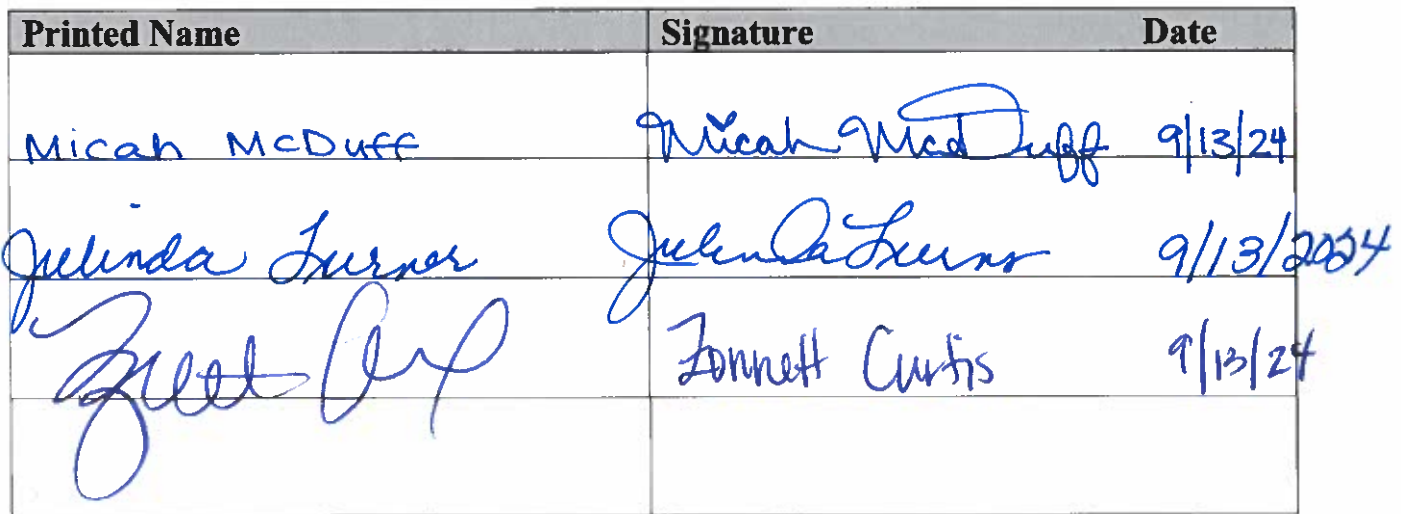 Printed Name Signature Date
Micah McDuff Micah McDuff 9/13/24
Julinda Turner Julinda Turner 9/13/2024
Zonnett Curtis 9/13/24